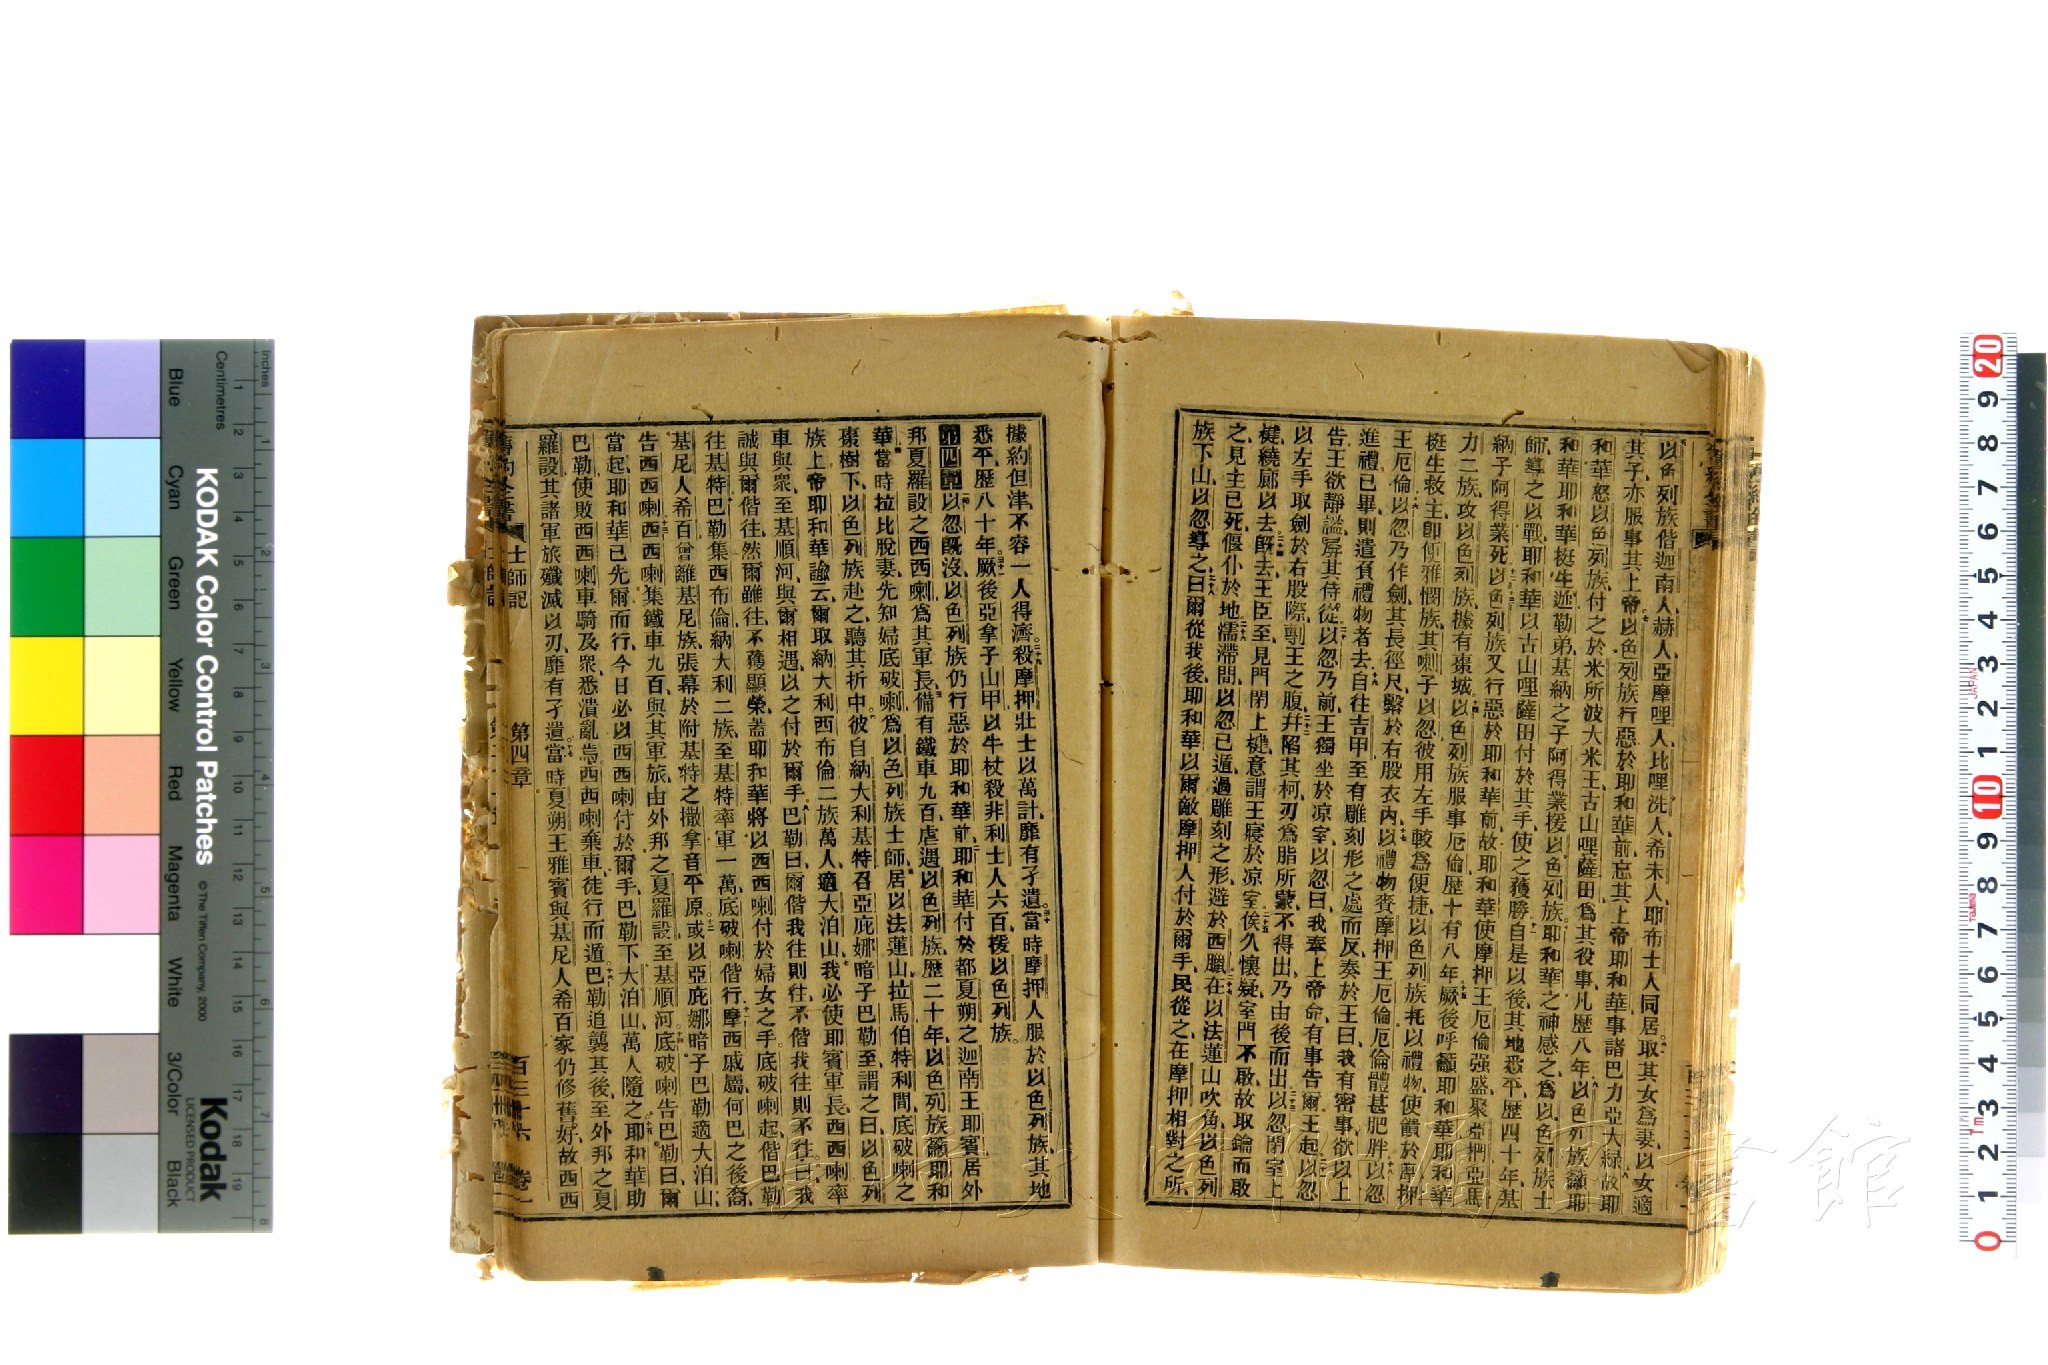 以色列族偕迦南人、赫人、亞摩哩人、比哩洗人、希未人、耶布士人同居、取其女爲妻、以女適
其子、亦服事其上帝、以色列族行惡於耶和華前、忘其上帝耶和華、事諸巴力亞大綠、故耶
和華怒以色列族、付之於米所波大米王古山哩薩田、爲其役事、凡歷八年、以色列族籲耶
和華、耶和華挺生迦勒弟基納之子阿得業、援以色列族、耶和華之神感之、爲以色列族士
師、導之以戰、耶和華以古山哩薩田付於其手、使之獲勝、自是以後、其地悉平、歷四十年、基
納子阿得業死、以色列族又行惡於耶和華前、故耶和華使摩押王厄倫强盛、聚亞捫亞馬
力二族、攻以色列族、據有棗城、以色列族服事厄倫、歷十有八年、厥後呼籲耶和華、耶和華
挺生救主、即便雅憫族、其喇子以忽、彼用左手較爲便捷、以色列族托以禮物、使饋於摩押
王厄倫、以忽乃作劍、其長徑尺、繫於右股衣內、以禮物賚摩押王厄倫、厄倫體甚肥胖、以忽
進禮已畢、則遣負禮物者去、自往吉甲、至有雕刻形之處而反、奏於王曰、我有密事、欲以上
告、王欲靜謐、屏其侍從、以忽乃前、王獨坐於凉室、以忽曰、我奉上帝命、有事告爾、王起、以忽
以左手取劍於右股際、剚王之腹、幷陷其柯、刃爲脂所蒙、不得出、乃由後而出、以忽閉室上
楗、繞廊以去、旣去、王臣至、見門閉上楗、意謂王寢於凉室、俟久懷疑、室門不啟、故取鑰而啟
之、見主已死、偃仆於地、濡滯間、以忽已遁、過雕刻之形、遊於西臘、在以法蓮山吹角、以色列
族下山、以忽導之曰、爾從我後、耶和華以爾敵摩押人付於爾手、民從之、在摩押相對之所、
據約但津、不容一人得濟、殺摩押壯士以萬計、靡有孑遺、當時摩押人服於以色列族、其地
悉平、歷八十年、厥後亞拿子山甲以牛杖殺非利士人六百、援以色列族。
第四章 以忽旣沒、以色列族仍行惡於耶和華前、耶和華付於都夏朔之迦南王耶賓、居外
邦夏羅設之西西喇爲其軍長、備有鐵車九百、虐遇以色列族、歷二十年、以色列族籲耶和
華、當時拉比脫妻先知婦底破喇、爲以色列族士師、居以法蓮山拉馬伯特利間、底破喇之
棗樹下、以色列族赴之、聽其折中、彼自納大利基特召亞庇娜暗子巴勒至、謂之曰、以色列
族上帝耶和華諭云、爾取納大利西布倫二族萬人、適大泊山、我必使耶賓軍長西西喇率
車與衆、至基順河、與爾相遇、以之付於爾手、巴勒曰、爾偕我往則往、不偕我往則不往、曰、我
誠與爾偕往、然爾雖往、不獲顯榮、蓋耶和華將以西西喇付於婦女之手、底破喇起、偕巴勒
往基特、巴勒集西布倫納大利二族、至基特、率軍一萬、底破喇偕行、摩西戚屬何巴之後裔、
基尼人希百曾離基尼族、張幕於附基特之撒拿音平原、或以亞庇娜暗子巴勒適大泊山、
告西西喇、西西喇集鐵車九百、與其軍旅、由外邦之夏羅設至基順河、底破喇告巴勒曰、爾
當起、耶和華已先爾而行、今日必以西西喇付於爾手、巴勒下大泊山、萬人隨之、耶和華助
巴勒、使敗西西喇車騎及衆、悉潰亂焉、西西喇棄車、徒行而遁、巴勒追襲其後、至外邦之夏
羅設、其諸軍旅殲滅以刃、靡有孑遺、當時夏朔王雅賓與基尼人希百家仍修舊好、故西西
士師記 第四章 百三十六 卷一
KODAK Color Control Patches
© The Tiffen Company, 2000
Kodak
LICENSED PRODUCT
Inches
Centimetres
Blue
Cyan
Green
Yellow
Red
Magenta
White
3/Color
Black
JAPAN